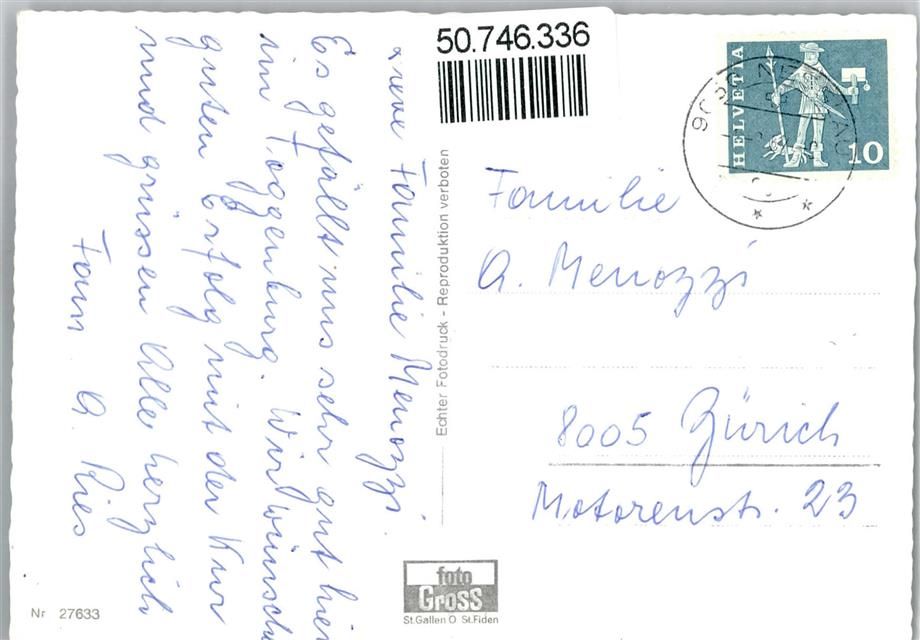 50.746.336
HELVETIA
10
Familie Menozzi
Es gefällt uns sehr gut hier
im Toggenburg. Wir wünschen
guten Erfolg mit der Kur
und grüssen Alle herzlich
Fam. A. Ries
Echter Fotodruck - Reproduktion verboten
Familie
A. Menozzi
8005 Zürich
Motorenstr. 23
foto
Gross
St.Gallen O. St.Fiden
Nr 27633